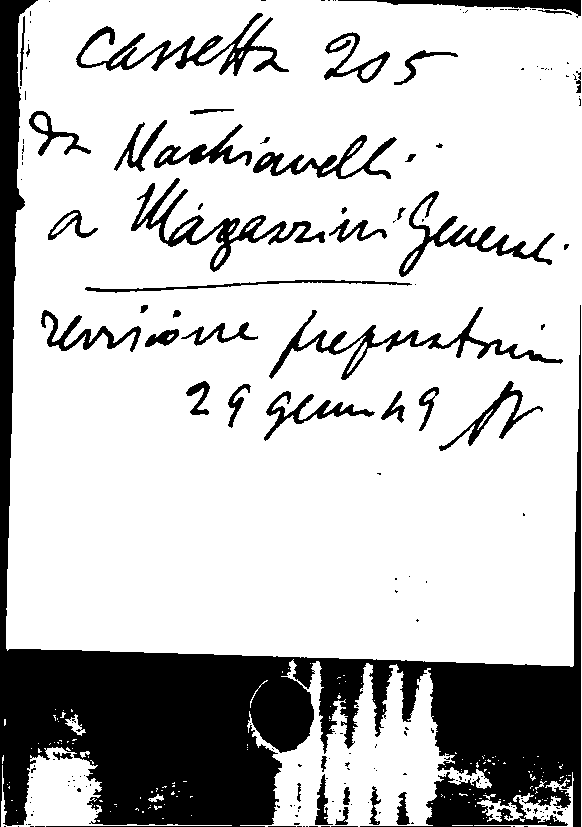 Cassetta 205
da Machiavelli
a Magazzini Generali
revisione preparatoria
29 genn 49